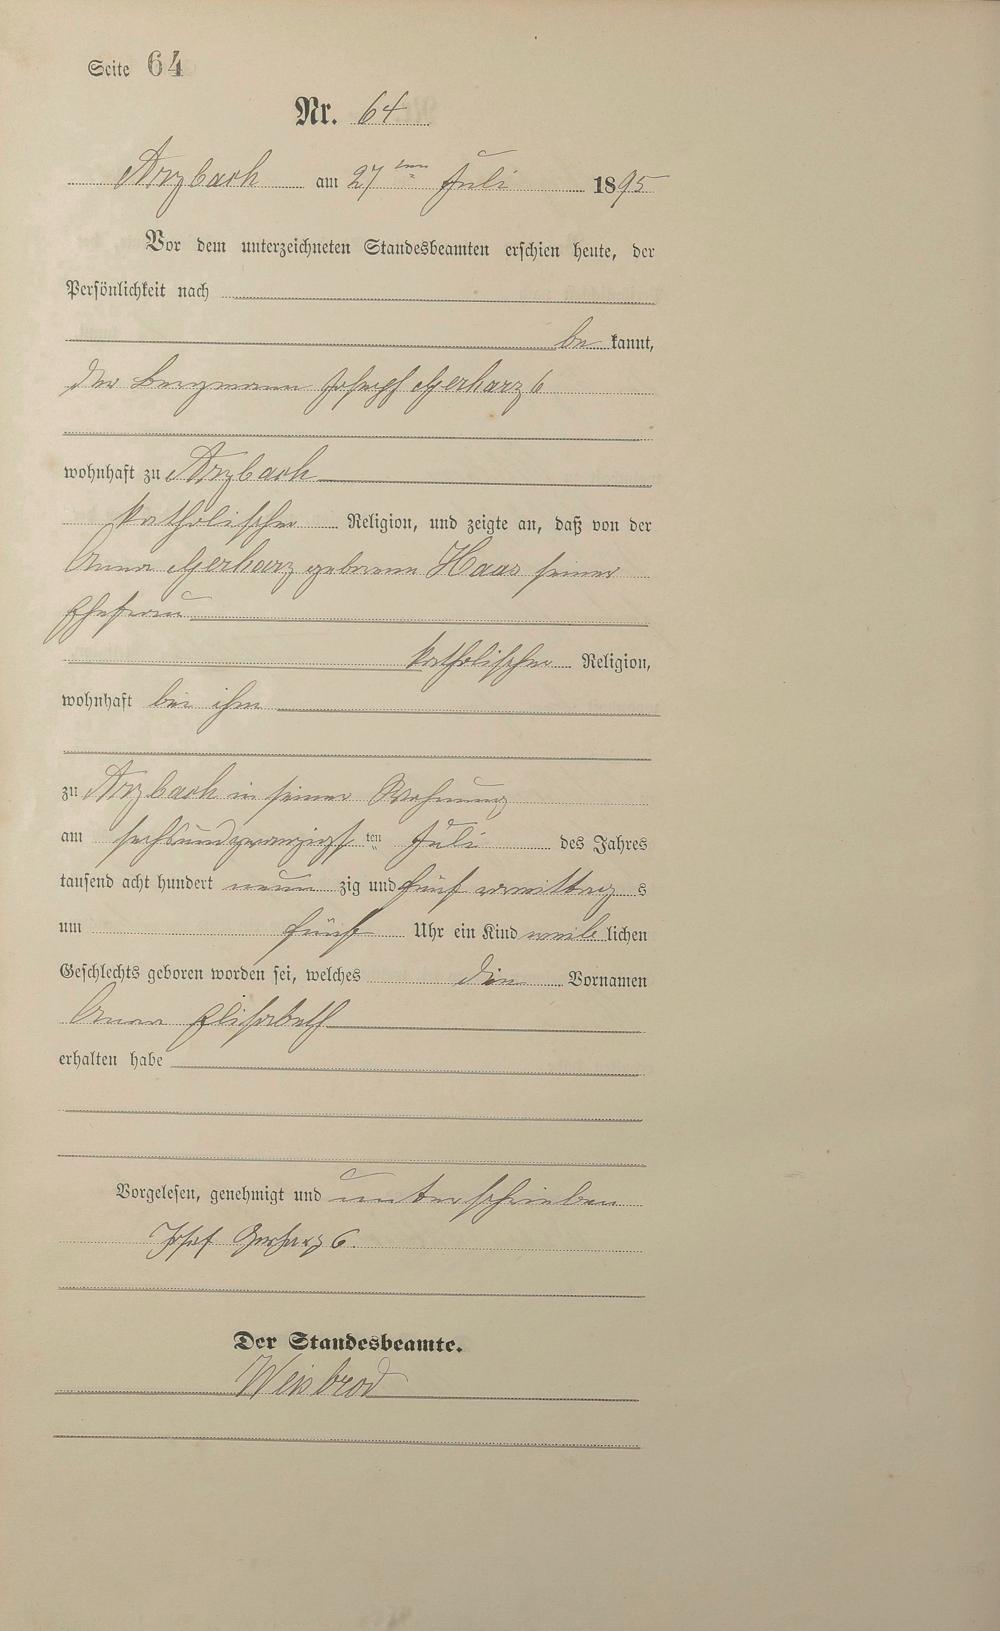 Seite 64
Nr. 64
Arzbach am 27ten Juli 1895
Vor dem unterzeichneten Standesbeamten erschien heute, der
Persönlichkeit nach
be kannt,
der Bergmann Joseph Gerharz 6
wohnhaft zu Arzbach
katholischer Religion, und zeigte an, daß von der
Anna Gerharz geborene Haas seiner
Ehefrau
katholischer Religion,
wohnhaft bei ihm
zu Arzbach in seiner Wohnung
am sechsundzwanzigsten Juli des Jahres
tausend acht hundert neun zig und fünf vormittag s
um fünf Uhr ein Kind weib lichen
Geschlechts geboren worden sei, welches die Vornamen
Anna Elisabeth
erhalten habe
Vorgelesen, genehmigt und unterschrieben
Josef Gerharz 6.
Der Standesbeamte.
Weisbrod